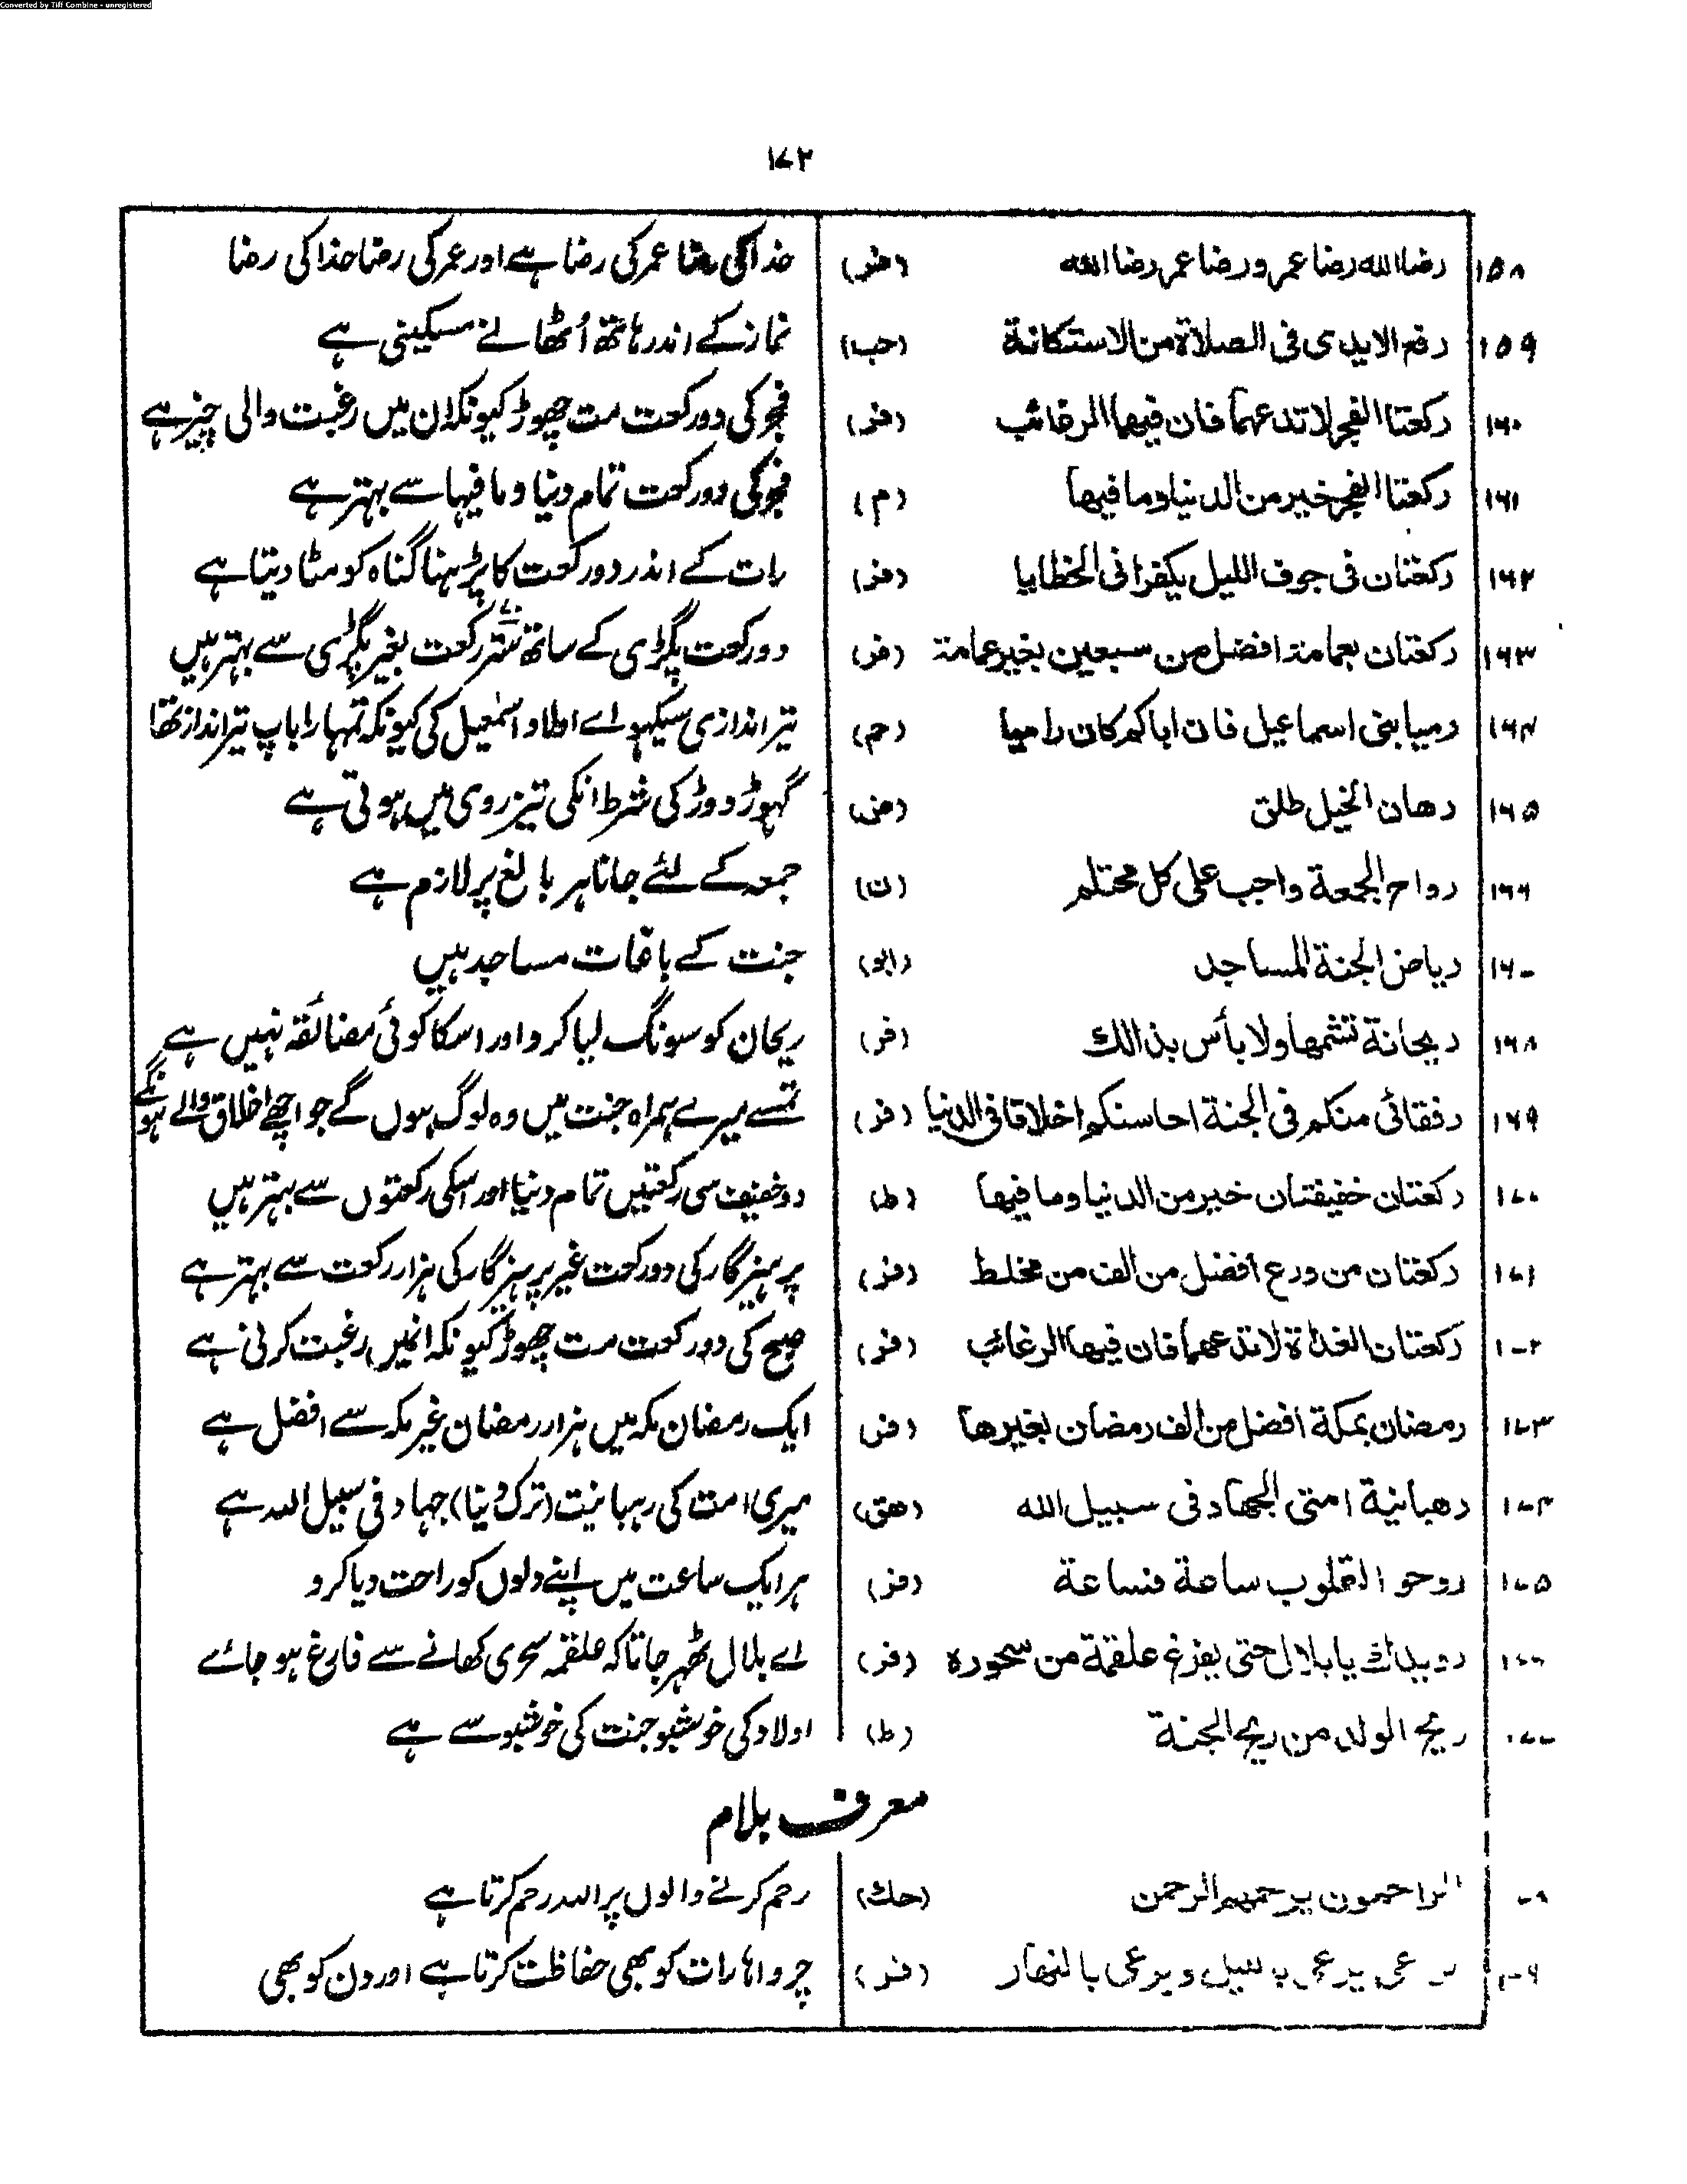 Converted by Tiff Combine - unregistered
۱۷۲
۱۵۸ رضا الله رضا عمر و رضا عمر رضا الله (فر) خدا کی رضا عمر کی رضا ہے اور عمر کی رضا خدا کی رضا
۱۵۹ رفع الایدی فی الصلاة من الاستکانة (حب) نماز کے اندر ہاتھ اُٹھانے مسکینی ہے
۱۶۰ رکعتا الفجر لا تدعهما فان فیهما الرغائب (فر) فجر کی دو رکعت مت چھوڑ کیونکہ ان میں رغبت والی چیز ہے
۱۶۱ رکعتا الفجر خیر من الدنیا وما فیها (م) فجر کی دو رکعت تمام دنیا و ما فیہا سے بہتر ہے
۱۶۲ رکعتان فی جوف اللیل یکفران الخطایا (فر) رات کے اندر دو رکعت کا پڑہنا گناہ کو مٹا دیتا ہے
۱۶۳ رکعتان بعمامة افضل من سبعین بغیر عمامة (فر) دو رکعت پگڑی کے ساتھ ستر رکعت بغیر پگڑی سے بہتر ہیں
۱۶۴ رمیا بنی اسماعیل فان اباکم کان رامیا (حم) تیر اندازی سیکہو اے اولاد اسمٰعیل کی کیونکہ تمہارا باپ تیر انداز تھا
۱۶۵ رهان الخیل طلق (ض) گہوڑ دوڑ کی شرط انکی تیز روی میں ہوتی ہے
۱۶۶ رواح الجمعة واجب علی کل محتلم (ن) جمعہ کے لئے جانا ہر بالغ پر لازم ہے
۱۶۷ ریاض الجنة المساجد (ابو) جنت کے باغات مساجد ہیں
۱۶۸ ریحانة تشمها ولا بأس بذالك (فر) ریحان کو سونگ لیا کرو اور اسکا کوئی مضائقہ نہیں ہے
۱۶۹ رفقائی منکم فی الجنة احاسنکم اخلاقا فی الدنیا (فر) تمسے میرے ہمراہ جنت میں وہ لوگ ہوں گے جو اچھے اخلاق والے ہونگے
۱۷۰ رکعتان خفیفتان خیر من الدنیا وما فیها (ط) دو خفیف سی رکعتیں تمام دنیا اور اسکی رکعتوں سے بہتر ہیں
۱۷۱ رکعتان من ورع افضل من الف من مخلط (فر) پرہیزگار کی دو رکعت غیر پرہیزگار کی ہزار رکعت سے بہتر ہے
۱۷۲ رکعتان الغداة لا تدعهما فان فیها الرغائب (فر) صبح کی دو رکعت مت چھوڑ کیونکہ انمیں رغبت کرنی ہے
۱۷۳ رمضان بمکة افضل من الف رمضان بغیرها (فر) ایک رمضان مکہ میں ہزار رمضان غیر مکہ سے افضل ہے
۱۷۴ رهبانیة امتی الجهاد فی سبیل الله (هق) میری امت کی رہبانیت (ترک دنیا) جہاد فی سبیل اللہ ہے
۱۷۵ روحو القلوب ساعة فساعة (فر) ہر ایک ساعت میں اپنے دلوں کو راحت دیا کرو
۱۷۶ رویدك یا بلال حتی یفرغ علقمة من سحوره (فر) اے بلال ٹھہر جا تا کہ علقمہ سحری کھانے سے فارغ ہو جائے
۱۷۷ ریح الولد من ریح الجنة (ط) اولاد کی خوشبو جنت کی خوشبو سے ہے
معرف بلام
الراحمون یرحمهم الرحمن (حك) رحم کرنے والوں پر اللہ رحم کرتا ہے
یرعی ویرعی بالنهار (فر) چرواہا رات کو بھی حفاظت کرتا ہے اور دن کو بھی